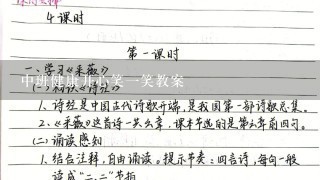 4课时
第一课时
一、学习《采薇》
中班健康开心笑一笑教案
(一)初识《诗经》
1、诗经是中国古代诗歌开端,是我国第一部诗歌总集。
2、《采薇》这首诗一共六章,课本节选的是第六章前四句。
(二)诵读感知
1、结合注释,自由诵读。提示节奏:四言诗,每句一般
读成“二、二”节拍